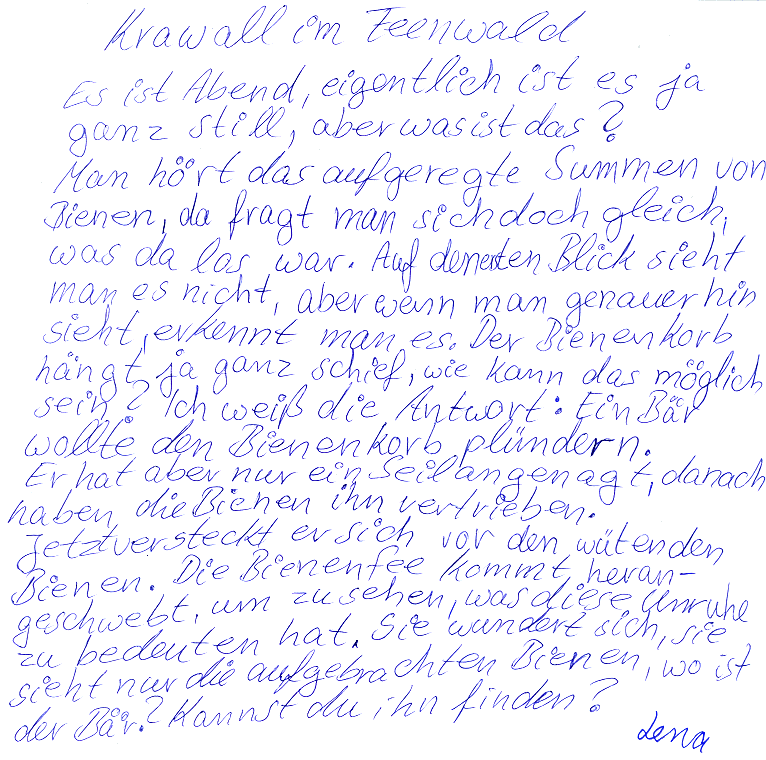 Krawall im Feenwald
Es ist Abend, eigentlich ist es ja
ganz still, aber was ist das?
Man hört das aufgeregte Summen von
Bienen, da fragt man sich doch gleich,
was da los war. Auf den ersten Blick sieht
man es nicht, aber wenn man genauer hin
sieht, erkennt man es. Der Bienenkorb
hängt ja ganz schief, wie kann das möglich
sein? Ich weiß die Antwort: Ein Bär
wollte den Bienenkorb plündern.
Er hat aber nur ein Seil angenagt, danach
haben die Bienen ihn vertrieben.
Jetzt versteckt er sich vor den wütenden
Bienen. Die Bienenfee kommt heran-
geschwebt, um zu sehen, was diese Unruhe
zu bedeuten hat. Sie wundert sich, sie
sieht nur die aufgebrachten Bienen, wo ist
der Bär? Kannst du ihn finden?
Lena